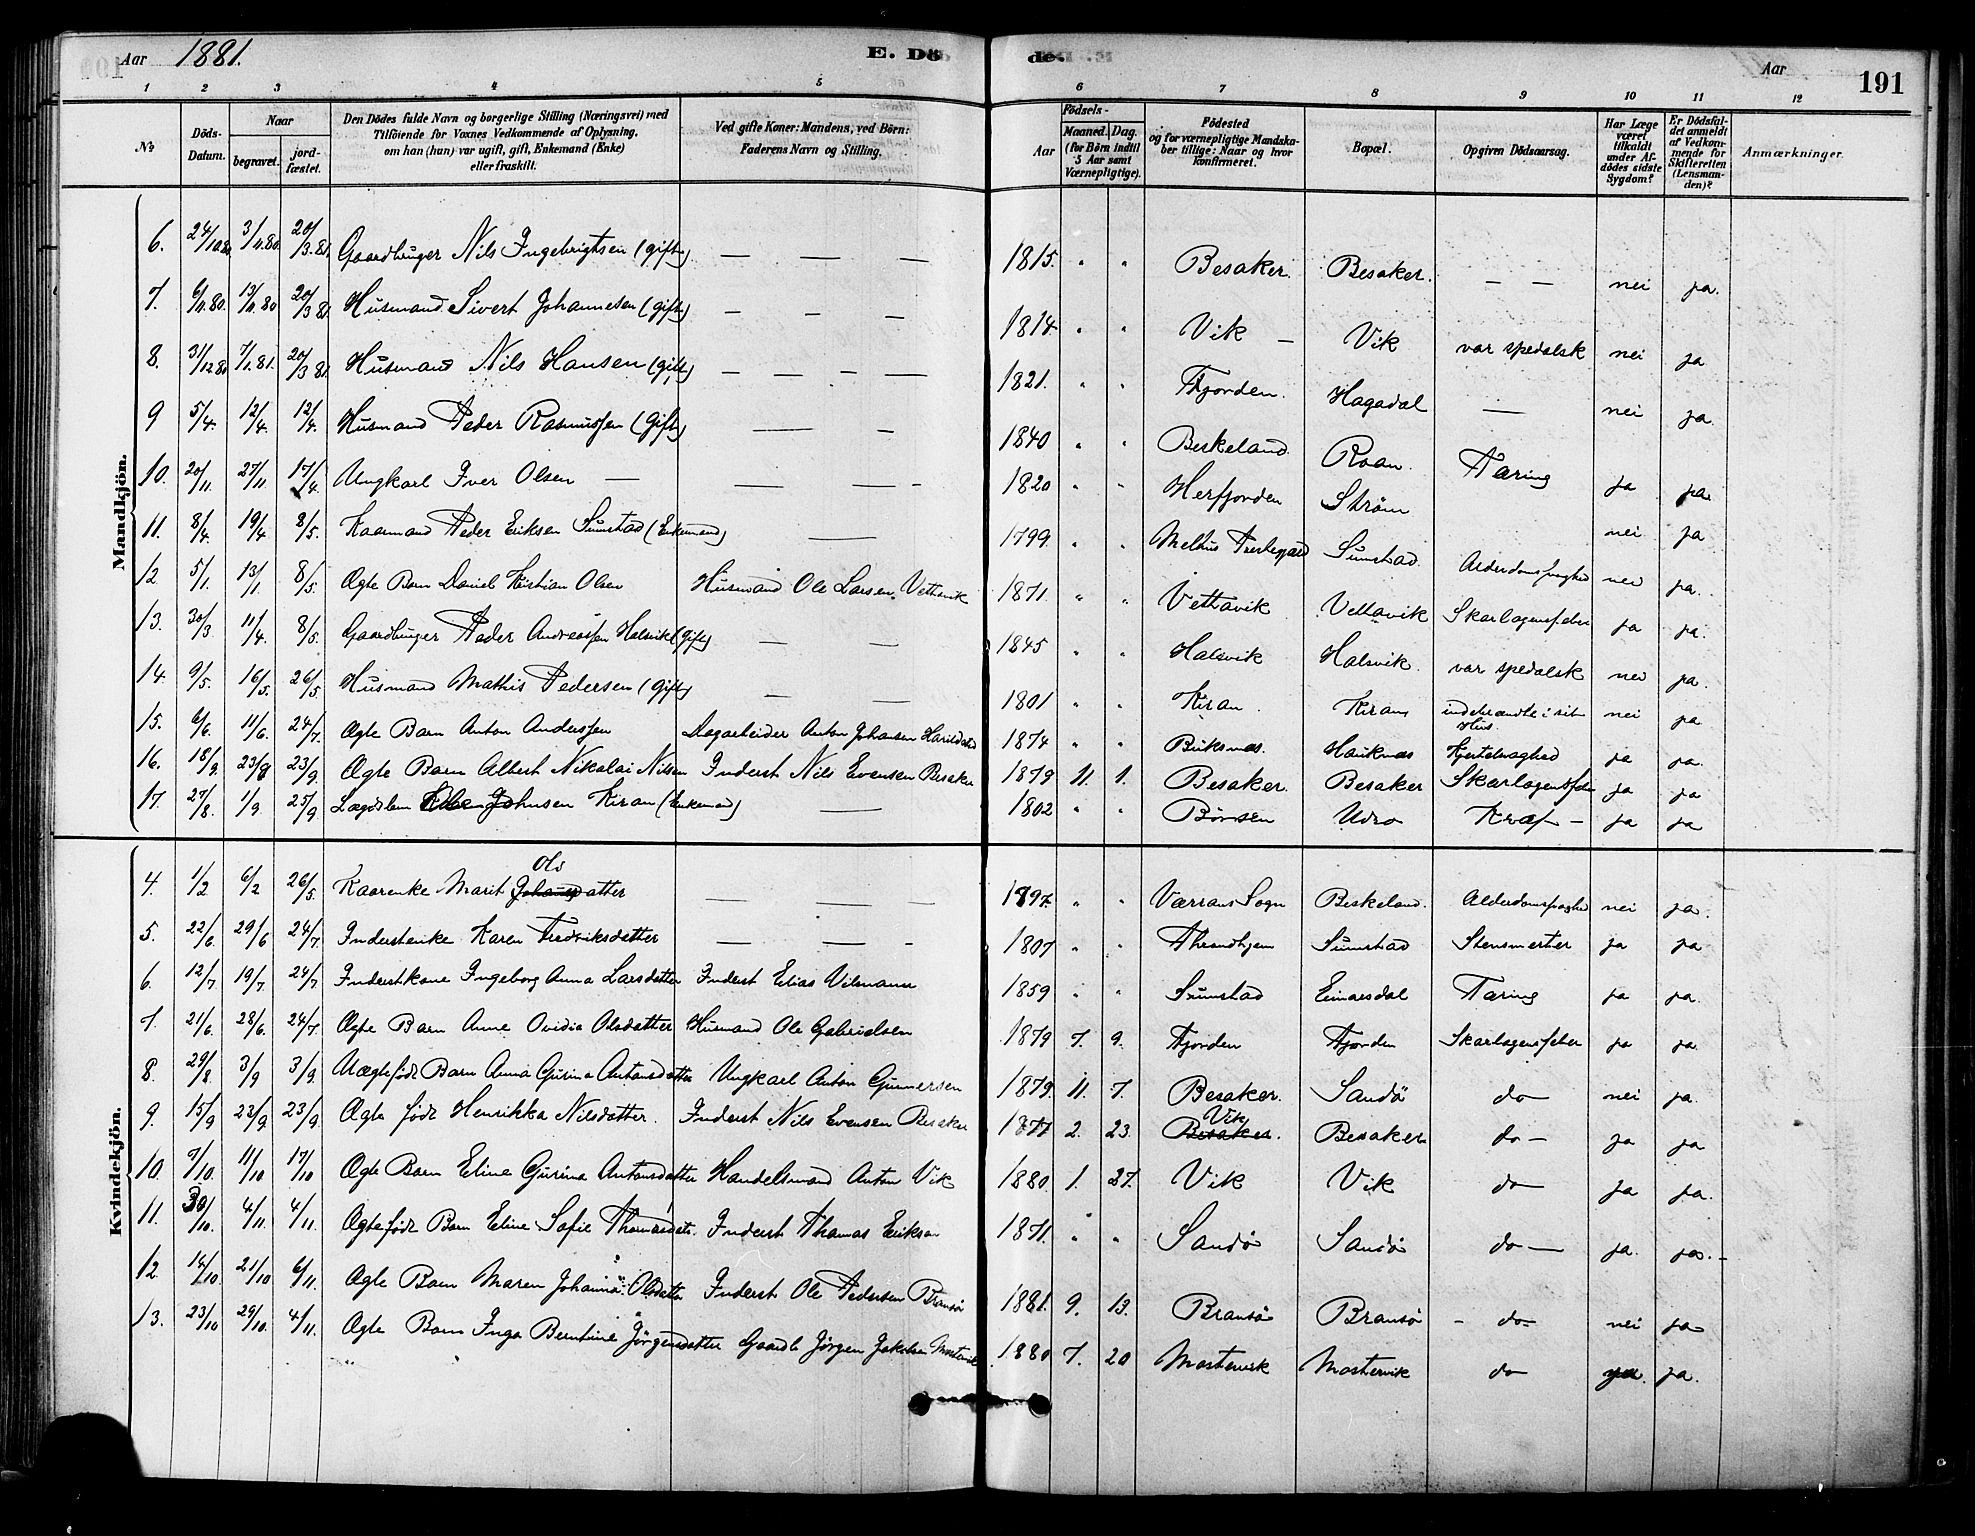 Aar 1881. E. Dö de. Aar 191
1 2 3 4 5 6 7 8 9 10 11 12
No
Döds-Datum.
Naar begravet. jord-fæstet.
Den Dödes fulde Navn og borgerlige Stilling (Næringsvei) med Tilföiende for Voxnes Vedkommende af Oplysning, om han (hun) var ugift, gift, Enkemand (Enke) eller fraskilt.
Ved gifte Koner: Mandens, ved Börn: Faderens Navn og Stilling.
Födsels-
Aar Maaned. Dag. (for Börn indtil 5 Aar samt Værnepligtige).
Födested og for værnepligtige Mandskaber tillige: Naar og hvor konfirmeret.
Bopæl.
Opgiven Dödsaarsag.
Har Læge været tilkaldt under Afdödes sidste Sygdom?
Er Dödsfaldet anmeldt af Vedkommende for Skifteretten (Lensmanden)?
Anmærkninger.
Mandkjön.
6. 24/10.80 3/11.80 20/3.81. Gaardbruger Nils Ingebrigtsen (gift) — — — 1815. " " Besaker. Besaker. — — nei ja.
7. 6/11.80. 13/11.80 20/3 81. Husmand Sivert Johannesen (gift) — — — 1814 " " Vik — Vik var spedalsk nei ja
8. 31/12 80 7/1.81. 20/3 81. Husmand Nils Hansen (gift) — — — — 1821. " " Fjorden. Hagadal — nei ja
9 5/4. 12/4. 12/4. Husmand Peder Rasmussen (Gift) — — 1840 " " Beskeland. Roan. Tæring ja ja
10. 20/11. 27/11 17/4. Ungkarl Iver Olsen — — — - 1820 " " Herfjorden Ström nei ja
11. 8/4. 19/4 8/5. Kaarmand Peder Eriksen Sumstad (Enkemand) — 1799. " " Melhus Sumstad. nei ja.
12 5/1. 13/1 8/5. Ægte Barn Daniel Kristian Olsen Husmand Ole Larsen Vettavik 1871. " " Vettavik Vettavik Skarlagensfeber ja ja.
13. 30/3. 11/4. 8/5. Gaardbruger Peder Andreassen Halsvik (Gift) — — 1845 " " Halsvik Halsvik. var spedalsk nei ja.
14. 9/5. 16/5. 26/5 Husmand Mathis Pedersen (Gift) — — 1801 " " Kiran Kiran indebrændte i sit Hus. nei ja
15. 6/6. 11/6. 24/7. Ægte Barn Anton Anderssen Dagarbeider Anton Johansen 1874 " " ja ja.
16. 18/9. 23/8 23/9. Ægte Barn Albert Nikolai Nilsen Inderst Nils Evensen Besaker 1879 11. 1. Besaker. Besaker Skarlagensfeber ja ja
17. 27/8. 1/9 25/9 Johnsen Kiran (Enkemand) — 1802 " " Börsen Udro Kræf — ja ja
Kvindekjön.
4. 1/2 6/2 26/5 Kaarenke Marit Olsdatter — — — 1797. " " Værrans Sogn Beskeland. nei ja.
5. 22/6. 29/6 24/7. Inderstenke Karen Fredriksdatter — — — 1807 " " Throndhjem Sumstad Stensmerter ja ja
6. 12/7 19/7. 24/7 Inderstkone Ingeborg Anna Larsdatter Inderst Elias Vilsmann 1859 " " Sumstad Einarsdal Tæring ja ja.
7. 21/6. 28/6. 24/7. Ægte Barn Anne Ovidia Olsdatter Husmand Ole Gabrielsen 1879 7. 9. Fjorden Fjorden Skarlagensfeber ja ja.
8. 29/8. 3/9 3/9. Uægtefödt Barn Anna Gurina Antonsdatter Ungkarl Anton Gunnersen 1879. 11. 7. Besaker. Sandö do nei ja.
9. 15/9 23/9 23/9. Ægte född Henrikka Nilsdatter. Inderst Nils Evensen Besaker 1877 2. 23. Vik Besaker. Besaker do — ja ja
10. 7/10. 11/10 17/10 Ægte Barn Eline Gurina Antonsdatter Handelsmand Anton Vik 1880. 1. 27. Vik Vik do ja ja.
11. 30/10. 4/11. 4/11. Ægtefödt Barn Eline Sofie Thomasdatr. Inderst Thomas Eriksen 1871. " " Sandö Sandö do — ja. ja. —
12. 14/10. 21/10 6/11. Ægte Barn Maren Johanna Olsdatter Inderst Ole Pedersen Bransö 1881. 9. 13. Bransö Bransö - do nei ja
13. 23/10 29/10. 4/11. Ægte Barn Inga Berntine Jörgensdatter Gaardb Jörgen Jakobsen Mostervik 1880 7. 20 Mostervik Mostervik do ja. ja.